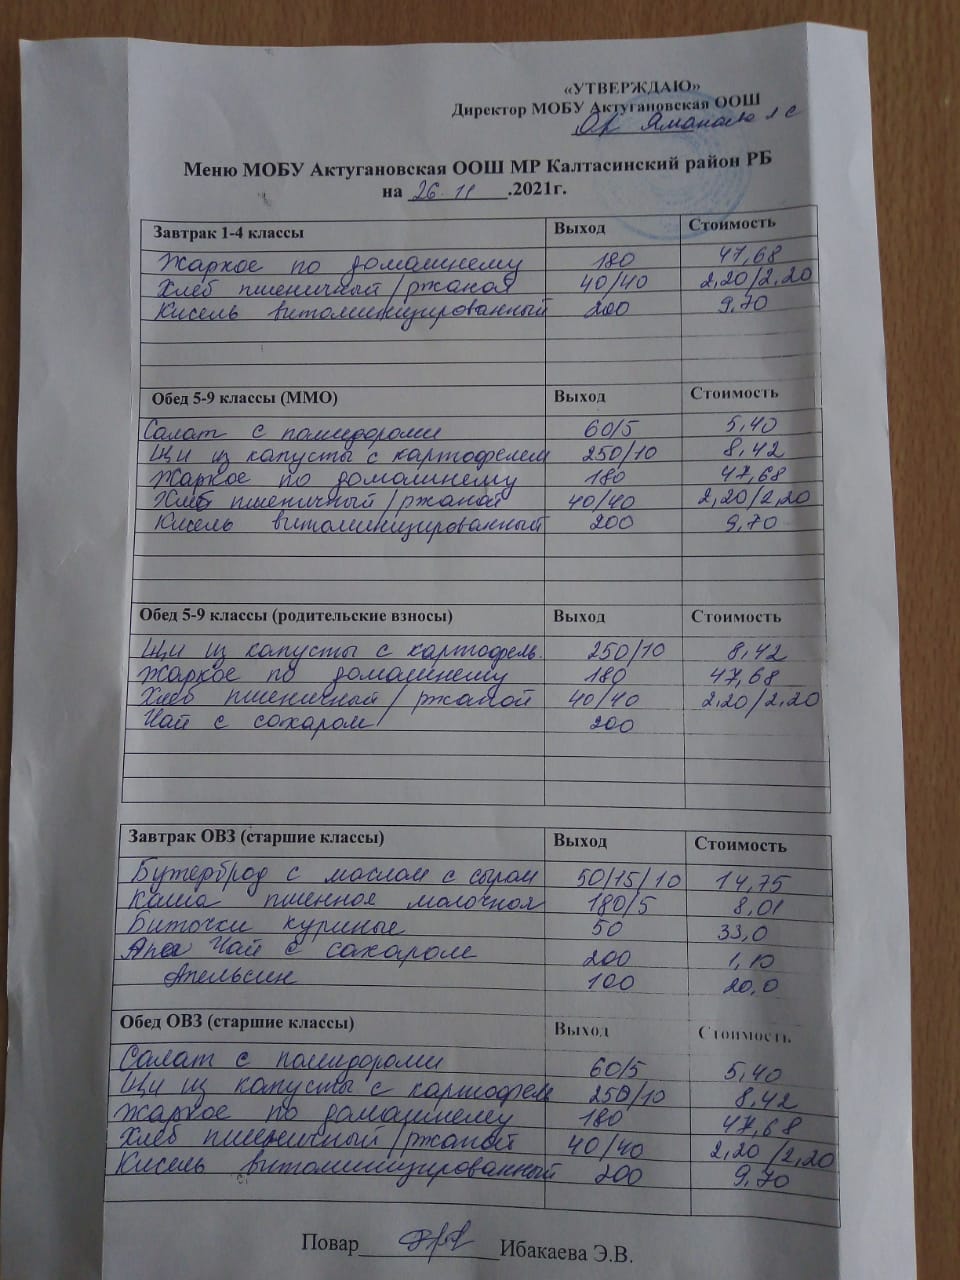 «УТВЕРЖДАЮ»
Директор МОБУ Актугановская ООШ
Меню МОБУ Актугановская ООШ МР Калтасинский район РБ
на 26.11 .2021г.
Завтрак 1-4 классы Выход Стоимость
Жаркое по домашнему 180 47,68
Хлеб пшеничный/ржаной 40/40 2,20/2,20
Кисель витаминизированный 200 9,70
Обед 5-9 классы (ММО) Выход Стоимость
Салат с помидорами 60/5 5,40
Щи из капусты с картофелем 250/10 8,42
Жаркое по домашнему 180 47,68
Хлеб пшеничный/ржаной 40/40 2,20/2,20
Кисель витаминизированный 200 9,70
Обед 5-9 классы (родительские взносы) Выход Стоимость
Щи из капусты с картофель. 250/10 8,42
Жаркое по домашнему 180 47,68
Хлеб пшеничный/ржаной 40/40 2,20/2,20
Чай с сахаром 200
Завтрак ОВЗ (старшие классы) Выход Стоимость
Бутерброд с маслом с сыром 50/15/10 14,75
Каша пшенная молочная 180/5 8,01
Биточки куриные 50 33,0
Чай с сахаром 200 1,10
Апельсин 100 20,0
Обед ОВЗ (старшие классы) Выход Стоимость
Салат с помидорами 60/5 5,40
Щи из капусты с картофелем 250/10 8,42
Жаркое по домашнему 180 47,68
Хлеб пшеничный/ржаной 40/40 2,20/2,20
Кисель витаминизированный 200 9,70
Повар Ибакаева Э.В.